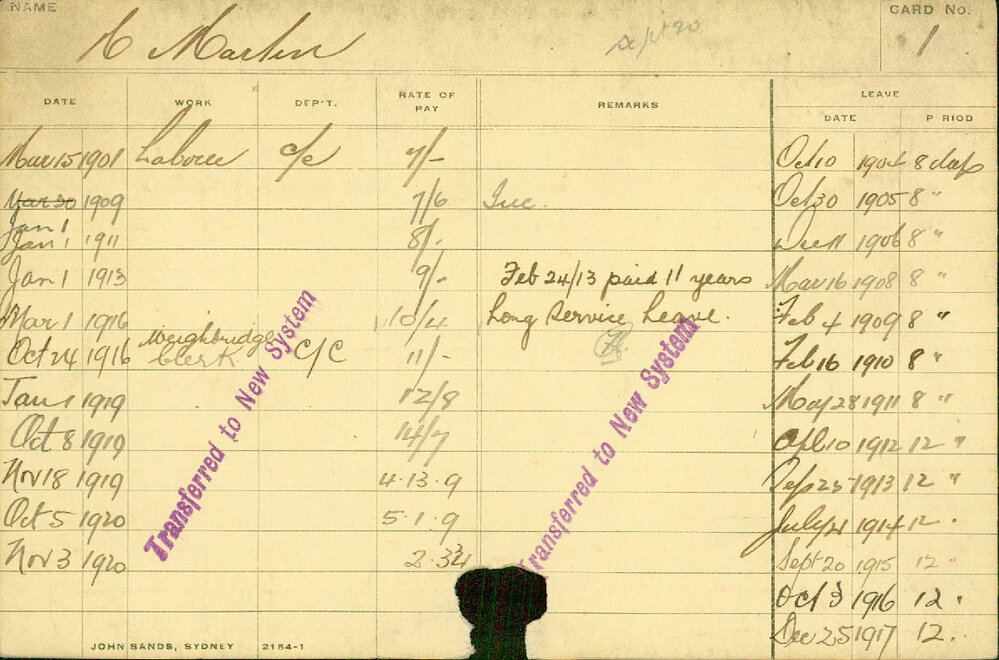 NAME
CARD No.
Martin
Sept 20
1
DATE WORK DEP'T. RATE OF PAY REMARKS LEAVE
DATE PERIOD
Mar 15 1901 Labourer c/c 7/- Oct 10 1904 8 days
Mar 30 1909 7/6 Inc. Oct 30 1905 8 "
Jan 1
Jan 1 1911 8/- Dec 11 1906 8 "
Jan 1 1913 9/- Feb 24/13 paid 11 years Mar 16 1908 8 "
Mar 1 1916 10/4 Long Service Leave. Feb 4 1909 8 "
Oct 24 1916 Weighbridge Clerk C/C 11/- Feb 16 1910 8 "
Jan 1 1919 12/8 May 28 1911 8 "
Oct 8 1919 14/7 Apl 10 1912 12 "
Nov 18 1919 4.13.9 Sep 25 1913 12 "
Oct 5 1920 5.1.9 July 21 1914 12 .
Nov 3 1920 Sept 20 1915 12 "
Oct 3 1916 12 "
Dec 25 1917 12 ..
Transferred to New System
Transferred to New System
JOHN SANDS, SYDNEY 2154-1